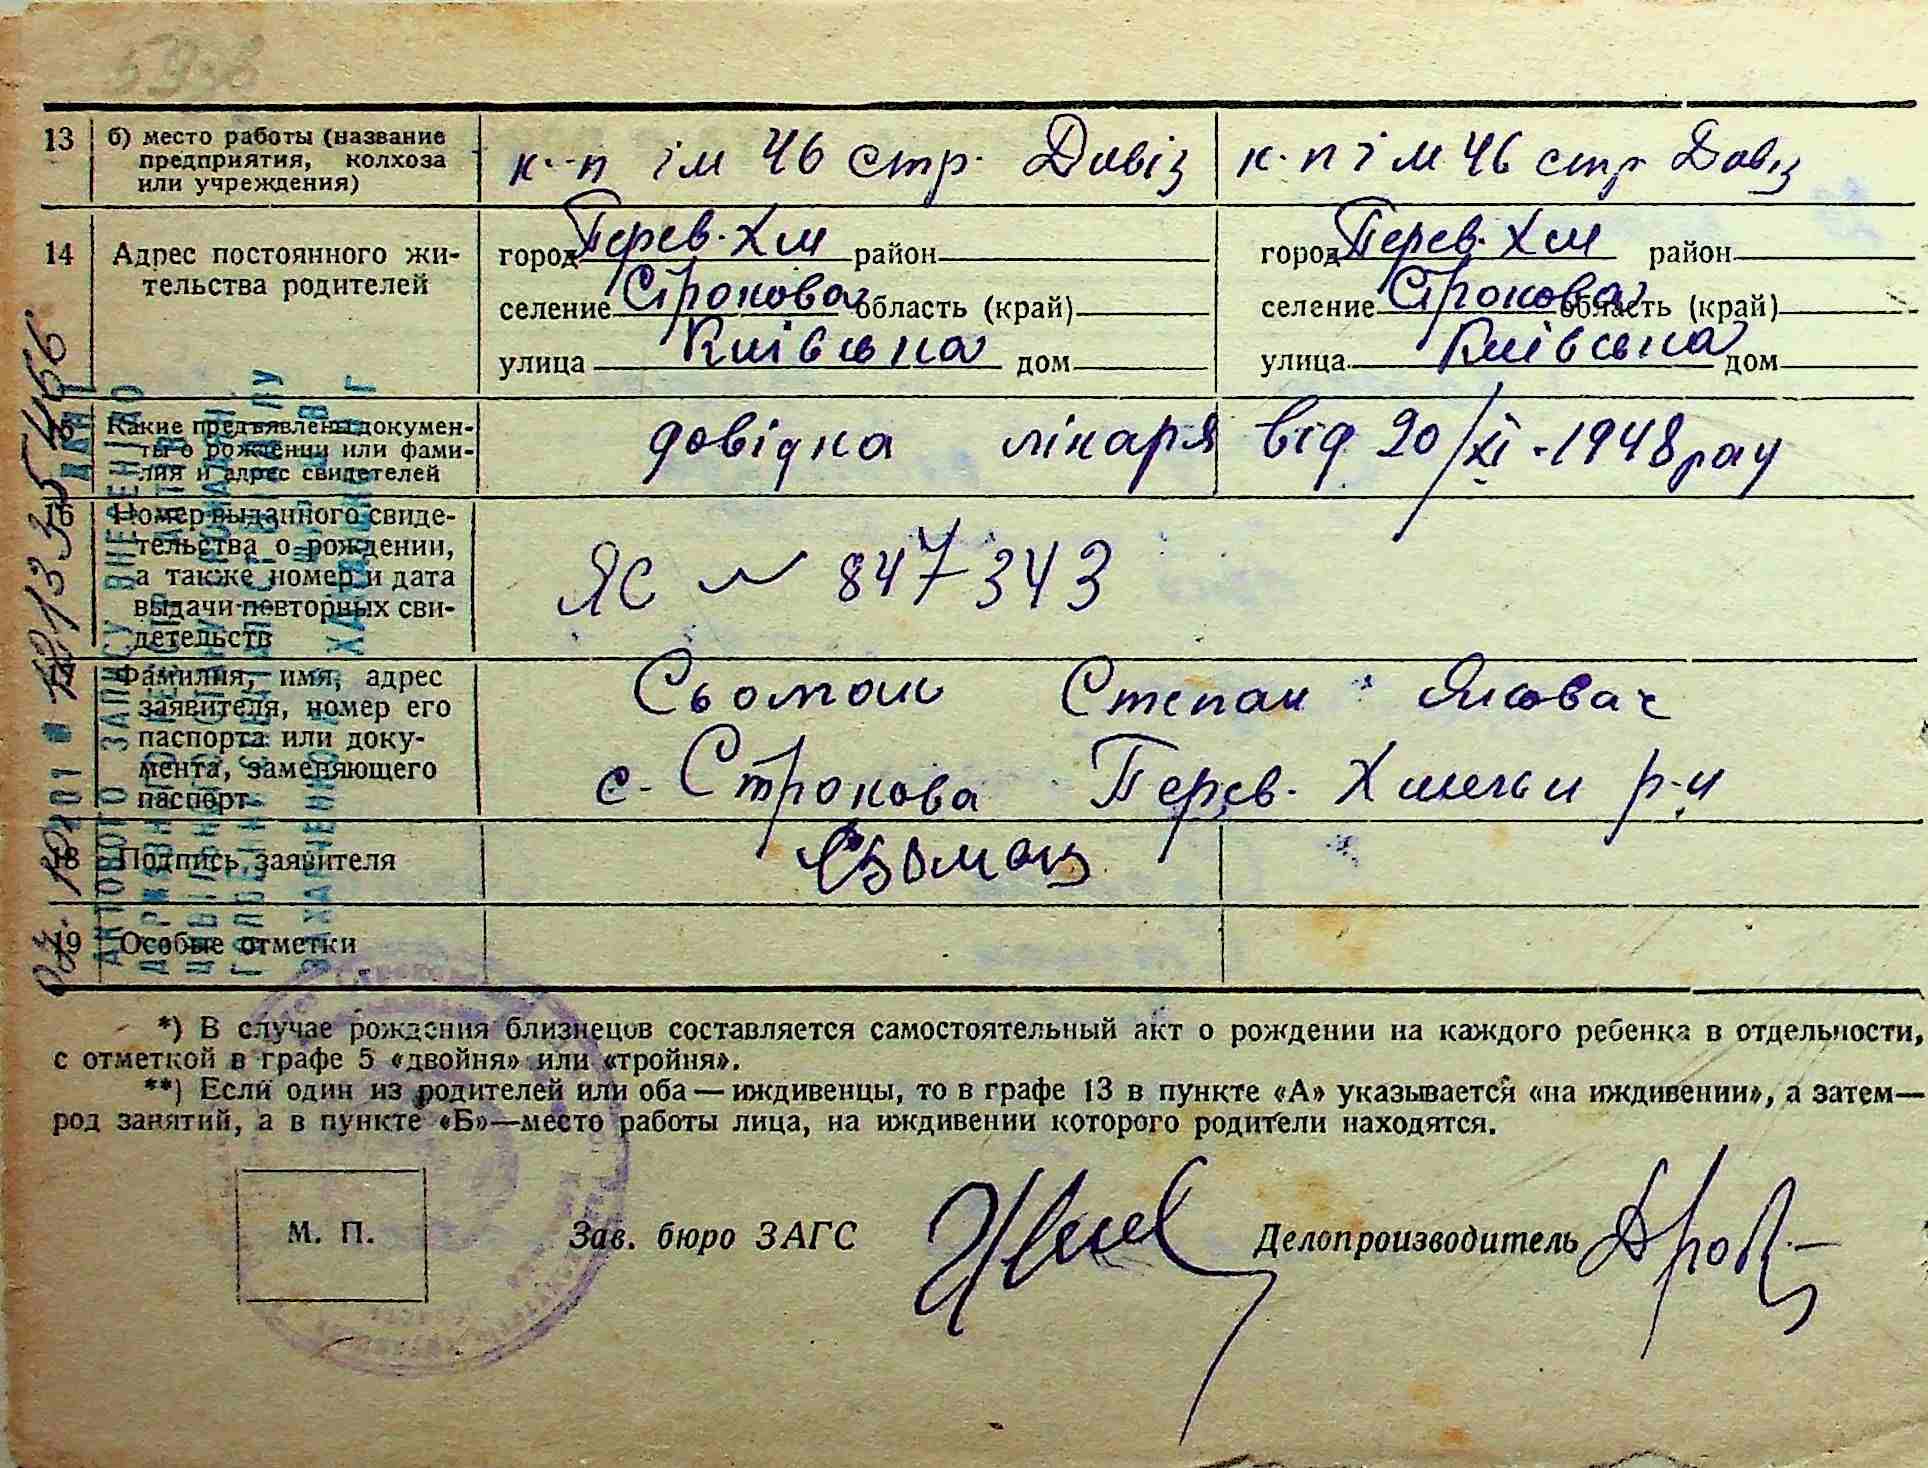 13 б) место работы (название предприятия, колхоза или учреждения) к-п ім 46 стр. Дивіз к-п ім 46 стр Дивіз
14 Адрес постоянного жительства родителей
город Перев.Хм район город Перев.Хм район
селение Строкова область (край) селение Строкова область (край)
улица Київська дом улица Київська дом
15 Какие предъявлены документы о рождении или фамилия и адрес свидетелей довідка лікаря від 20/XI-1948 року
16 Номер выданного свидетельства о рождении, а также номер и дата выдачи повторных свидетельств ЯС № 847343
17 Фамилия, имя, адрес заявителя, номер его паспорта или документа, заменяющего паспорт
Сьоман Степан
с. Строкова Перев. р-н
18 Подпись заявителя Сьоман
19 Особые отметки
*) В случае рождения близнецов составляется самостоятельный акт о рождении на каждого ребенка в отдельности,
с отметкой в графе 5 «двойня» или «тройня».
**) Если один из родителей или оба — иждивенцы, то в графе 13 в пункте «А» указывается «на иждивении», а затем—
род занятий, а в пункте «Б»—место работы лица, на иждивении которого родители находятся.
М. П. Зав. бюро ЗАГС Делопроизводитель
АКТОВОГО ЗАПИСУ ВНЕСЕНІ ДО